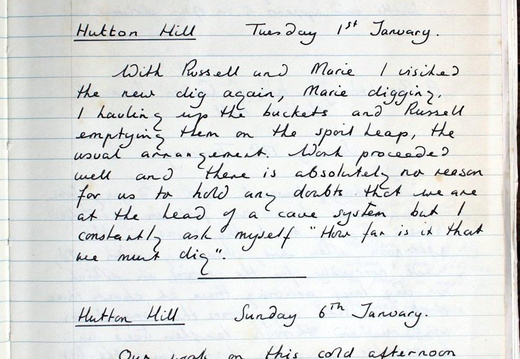 Hutton Hill Tuesday 1st January.
With Russell and Marie I visited
the new dig again, Marie digging,
I hauling up the buckets and Russell
emptying them on the spoil heap, the
usual arrangement. Work proceeded
well and there is absolutely no reason
for us to hold any doubts that we are
at the head of a cave system but I
constantly ask myself "How far is it that
we must dig".
Hutton Hill Sunday 6th January.
Our work on this cold afternoon